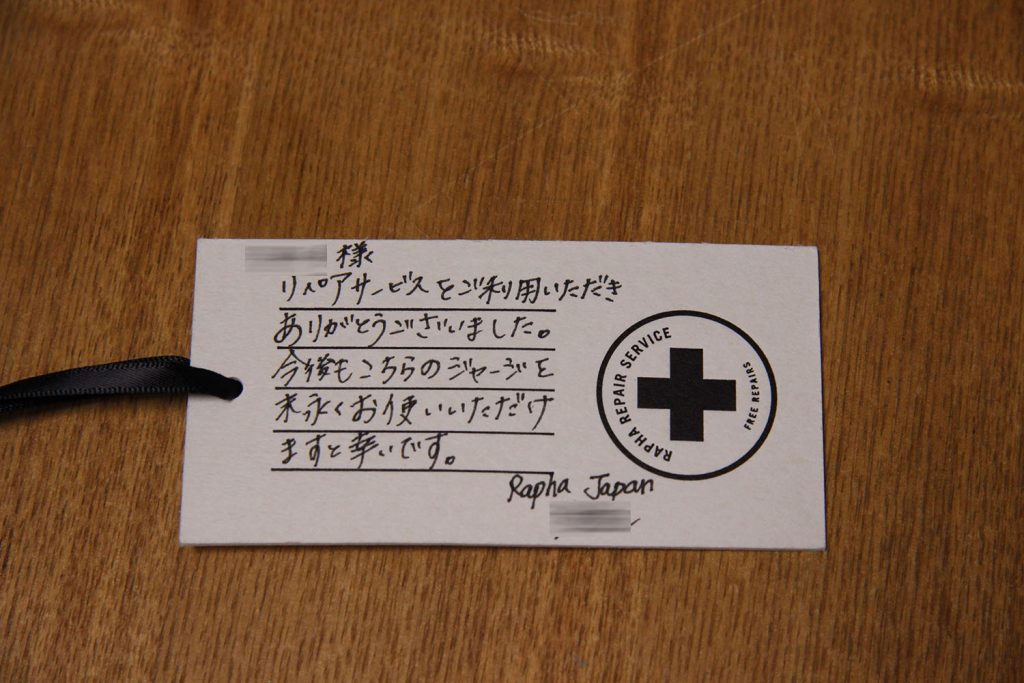 様
リペアサービスをご利用いただき
ありがとうございました。
今後もこちらのジャージを
末永くお使いいただけ
ますと幸いです。
Rapha Japan
RAPHA REPAIR SERVICE
FREE REPAIRS